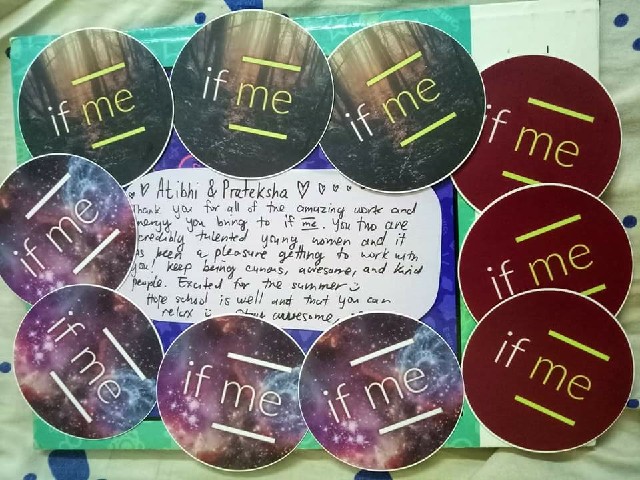 if me
if me
if me
if me
if me
if me
if me
if me
if me
if me
Atibhi & Prateksha
Thank you for all of the amazing work and
energy you bring to if me. You two are
incredibly talented young women and it
has been a pleasure getting to work with
you! Keep being curious, awesome, and kind
people. Excited for the summer
Hope school is well and that you can
relax awesome,